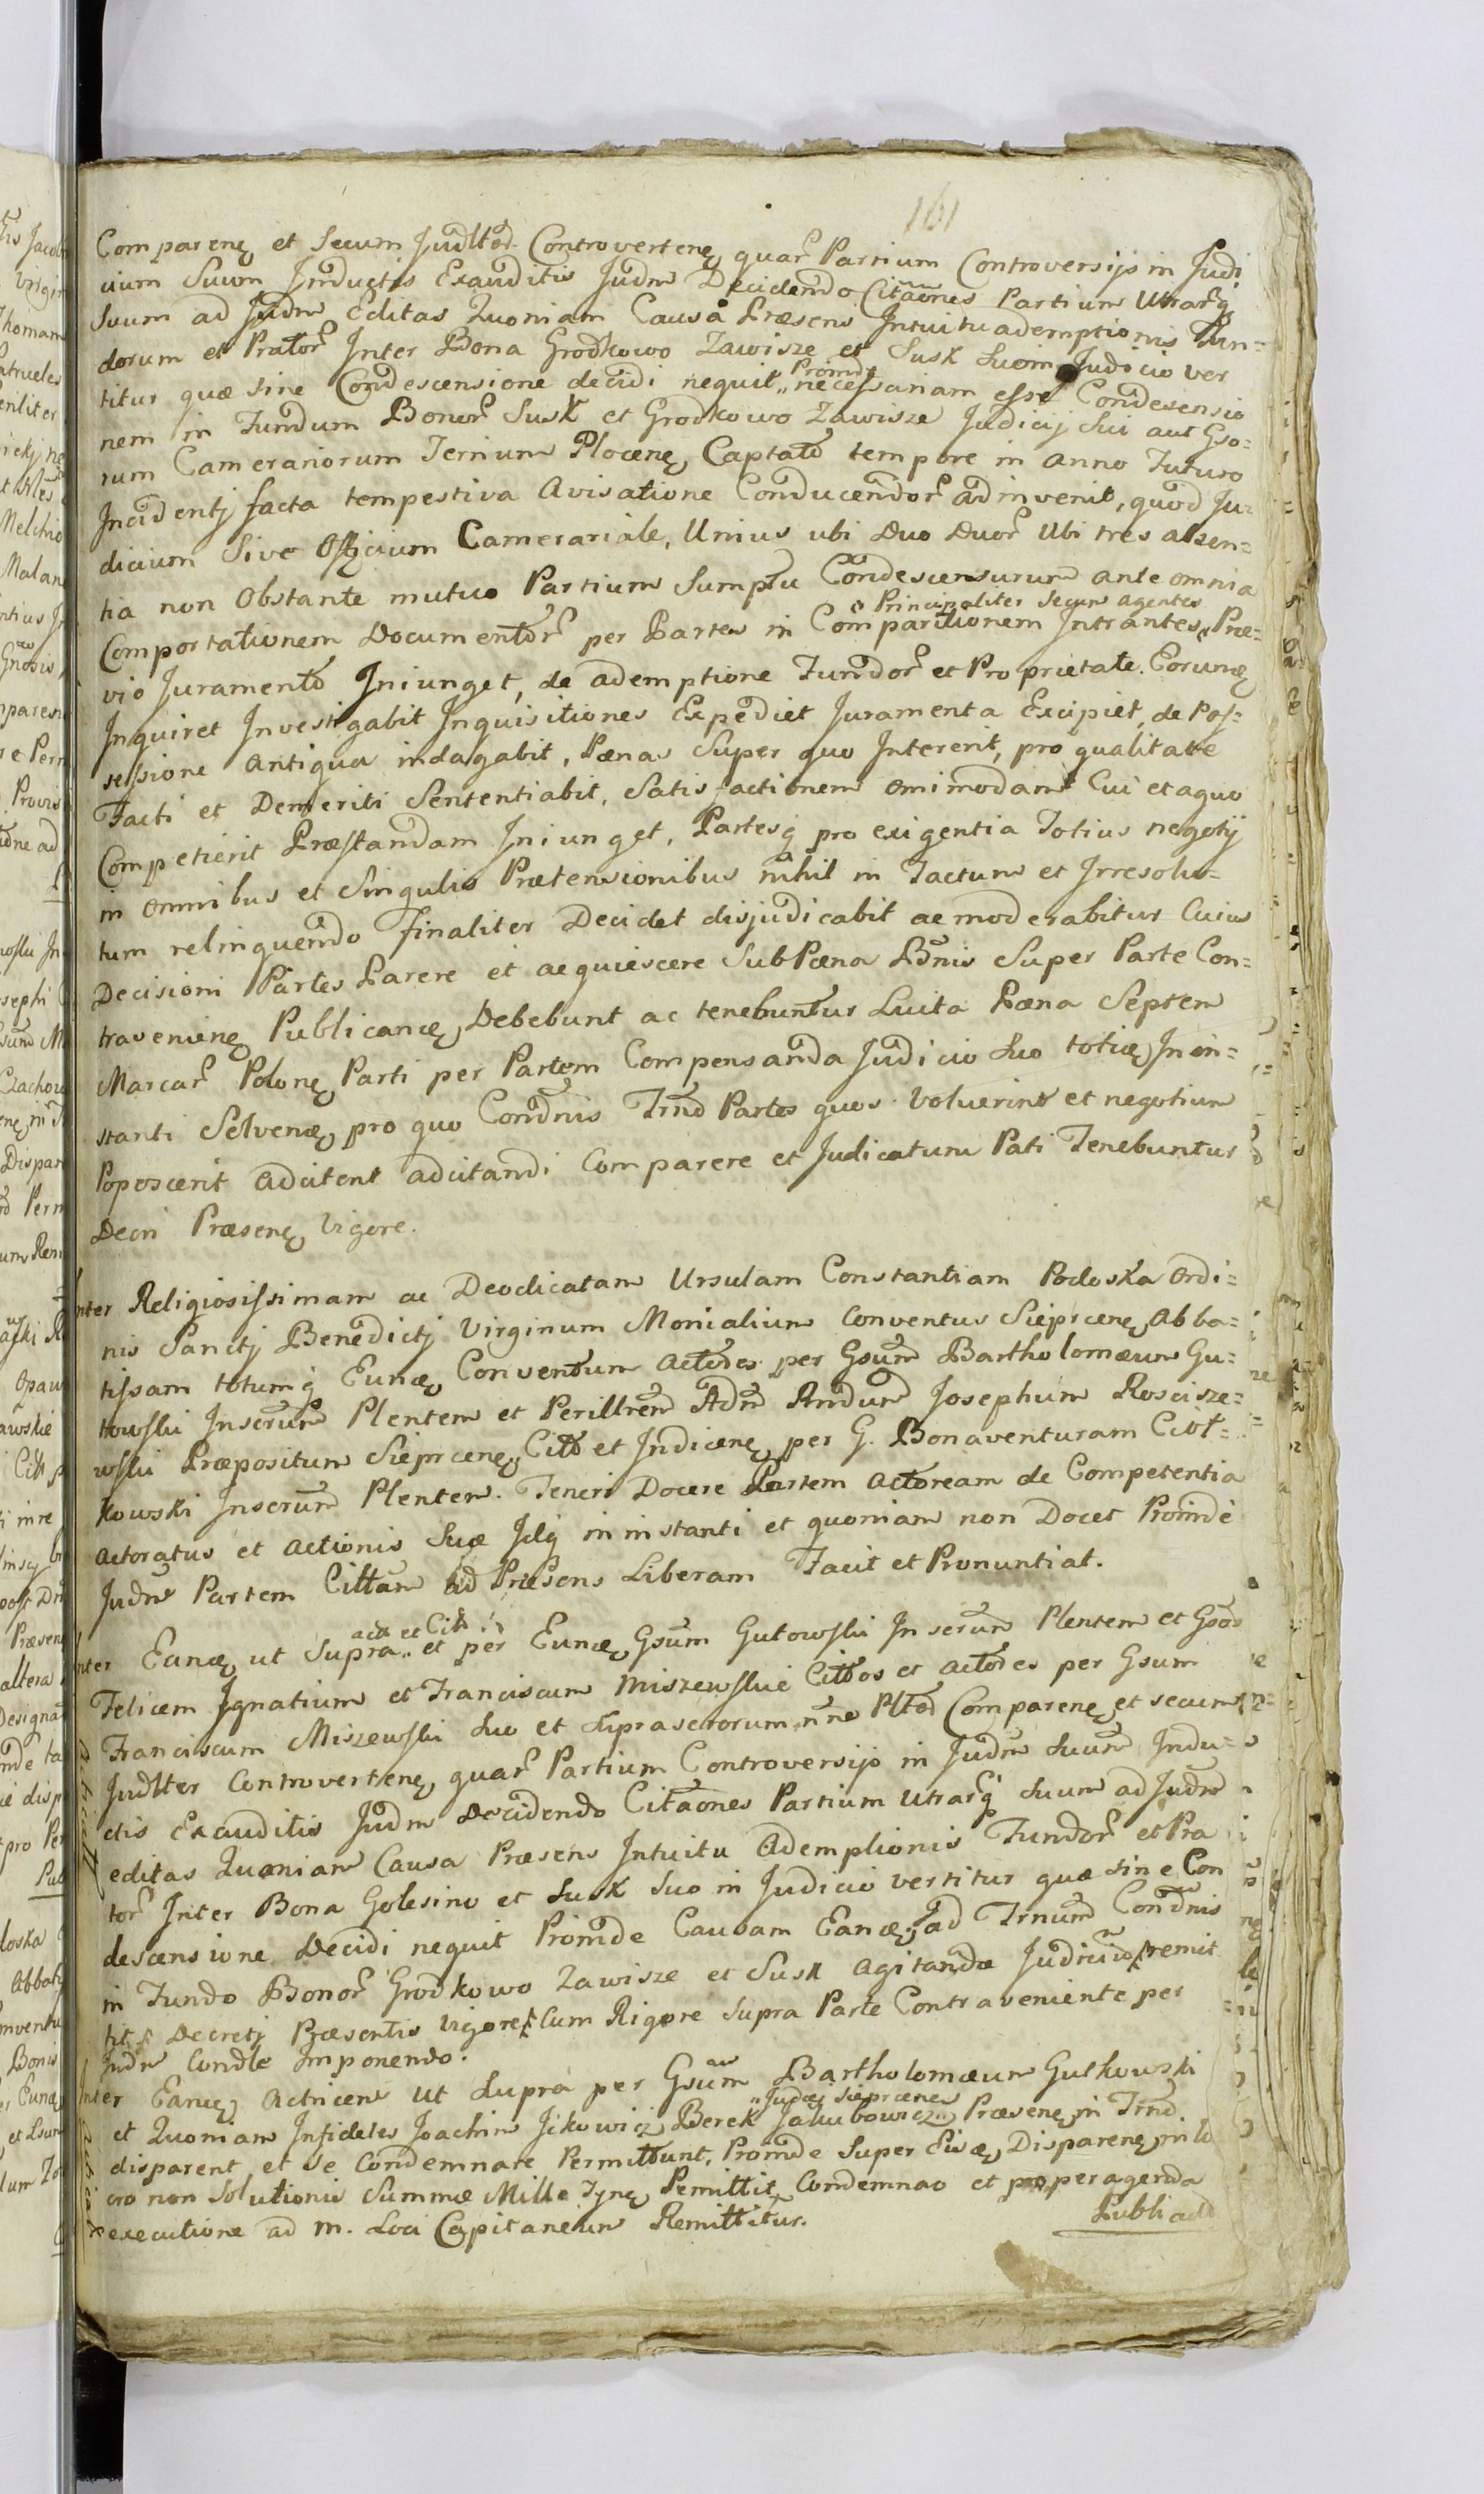 161
Comparenę et Secum Judltēr Controvertenę quar͂ Partium Controversijs in Judi
cium Suum Inductis Exauditis Judm Decidendo Citāōnes Partium Utrarq
Suum ad Judm Editas Quoniam Causa Præsens Intuitu ademptionis Fun=
dorum et Prator͂ Inter Bona Grodkowo Zawisze et Susk Suo in Judicio ver
titur quæ sine Condescensione decidi nequit „ Proinde necessariam esse Condescensio
nem in Fundum Bonor͂ Susk et Grodkowo Zawisze Judicij Sui aut Gso=
rum Camerariorum Ternum Plocenę Captato tempore in Anno Futuro
Incidentj facta tempestiva Avisatione Conducendor͂ adinvenit, quod Ju=
dicium Sive Officium Camerariale, Unius ubi Duo Duor͂ Ubi tres absen=
tia non Obstante mutuo Partium Sumptu Condescensurum ante omnia
Comportationem Documentor͂ per Partes in Comparitionem Intrantes „ Principaliter Secum agentes Præ=
vio Juramento Iniunget, de ademptione Fundor͂ et Proprietate Eorunę
Inquiret Investigabit Inquisitiones Expediet Juramenta Excipiet, de Pos=
sessione Antiqua indagabit, Pænas Super quo Intererit, pro qualitate
Facti et Demeriti Sententiabit, Satisfactionem omimodam Cui et a quo
Competierit Præstandam Iniunget, Partesq pro exigentia Totius negotij
in omnibus et Singulis Prætensionibus nihil in Tactum et Irresolu=
tum relinquendo finaliter Decidet disjudicabit ac moderabitur Cuius
Decisioni Partes Parere et acquiescere Sub Pæna Bnis Super Parte Con=
travenienę Publicanæ, Debebunt ac tenebuntur Luita Pæna Septem
Marcar͂ Polonę Parti per Partem Compensanda Judicio Suo totię In in=
stanti Solvenæ, pro quo Condnis Trnō Partes quos Voluerint et negotium
Poposcerit adcitent adcitandi Comparere et Judicatum Pati Tenebuntur
Decri Præsenę Vigore.
Inter Religiosissimam ac Deodicatam Ursulam Constantiam Podoska Ordi=
nis Sanctj Benedictj Virginum Monialium Conventus Sieprcenę Abba=
tissam totumq Eunæ Conventum Actores per Gsum Bartholomæum Gu=
towski Inserum Plentem et Perillrem Adm Rndum Josephum Roscisze=
wski Præpositum Sieprcenę, Citt et Indicenę per G. Bonaventuram Ciot=
kowski Inserum Plentem. Teneri Docere Partem Actoream de Competentia
Actoratus et Actionis Suæ Idq in instanti et quoniam non Docet Proinde
Judm Partem Cittam ad Præsens Liberam Facit et Pronuntiat.
Inter Eanæ ut Supra „ act et Citt et per Eunæ Gsum Gutowski Inserum Plentem et Gsos
Felicem Ignatium et Franciscum Miszewskie Cittos et Actores per Gsum
Franciscum Miszewski Suo et supra scrorum nne Pltēr Comparenę et secum
Judlter Controvertenę quar͂ Partium Controversijs in Judm Suum Indu=
ctis Exauditis Judm Decidendo Citaones Partium Utrarq Suum ad Judm
editas Quoniam Causa Præsens Intuitu Ademptionis Fundor͂ et Pra
tor͂ Inter Bona Golesino et Susk Suo in Judicio vertitur quæ sine Con
descensione Decidi nequit Proinde Causam Eanæ, ad Trnum Condnis
in Fundo Bonor͂ Grodkowo Zawisze et Susk Agitandæ Judicio remit
tit Decretj Præsentis Vigore Cum Rigore Supra Parte Contraveniente per
Judm Condle Imponendo.
Inter Eanę Actricem Ut Supra per Gsum Bartholomæum Gutkowski
et Quoniam Infideles Joachim Ickowicz Berek Jakubowicz „ Judæi Sieprcenę Præsenę in Trno
disparent et Se Condemnare Permittunt, Proinde Super Eisę, Disparenę in lu
cro non Solutionis Summæ Mille Tynę Pemittit Condemnao et pro peragenda
executione ad m. Loci Capitaneum Remittitur.
Publicād